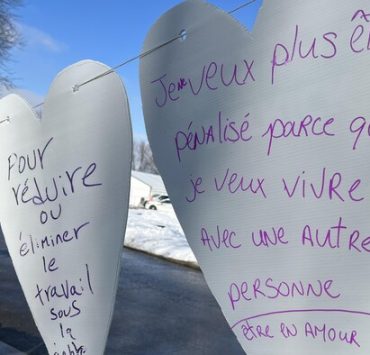 Pour
réduire
ou
éliminer
le
travail
sous
la
Je ne veux plus
pénalisé parce
je veux vivre
avec une autre
personne
être en amour